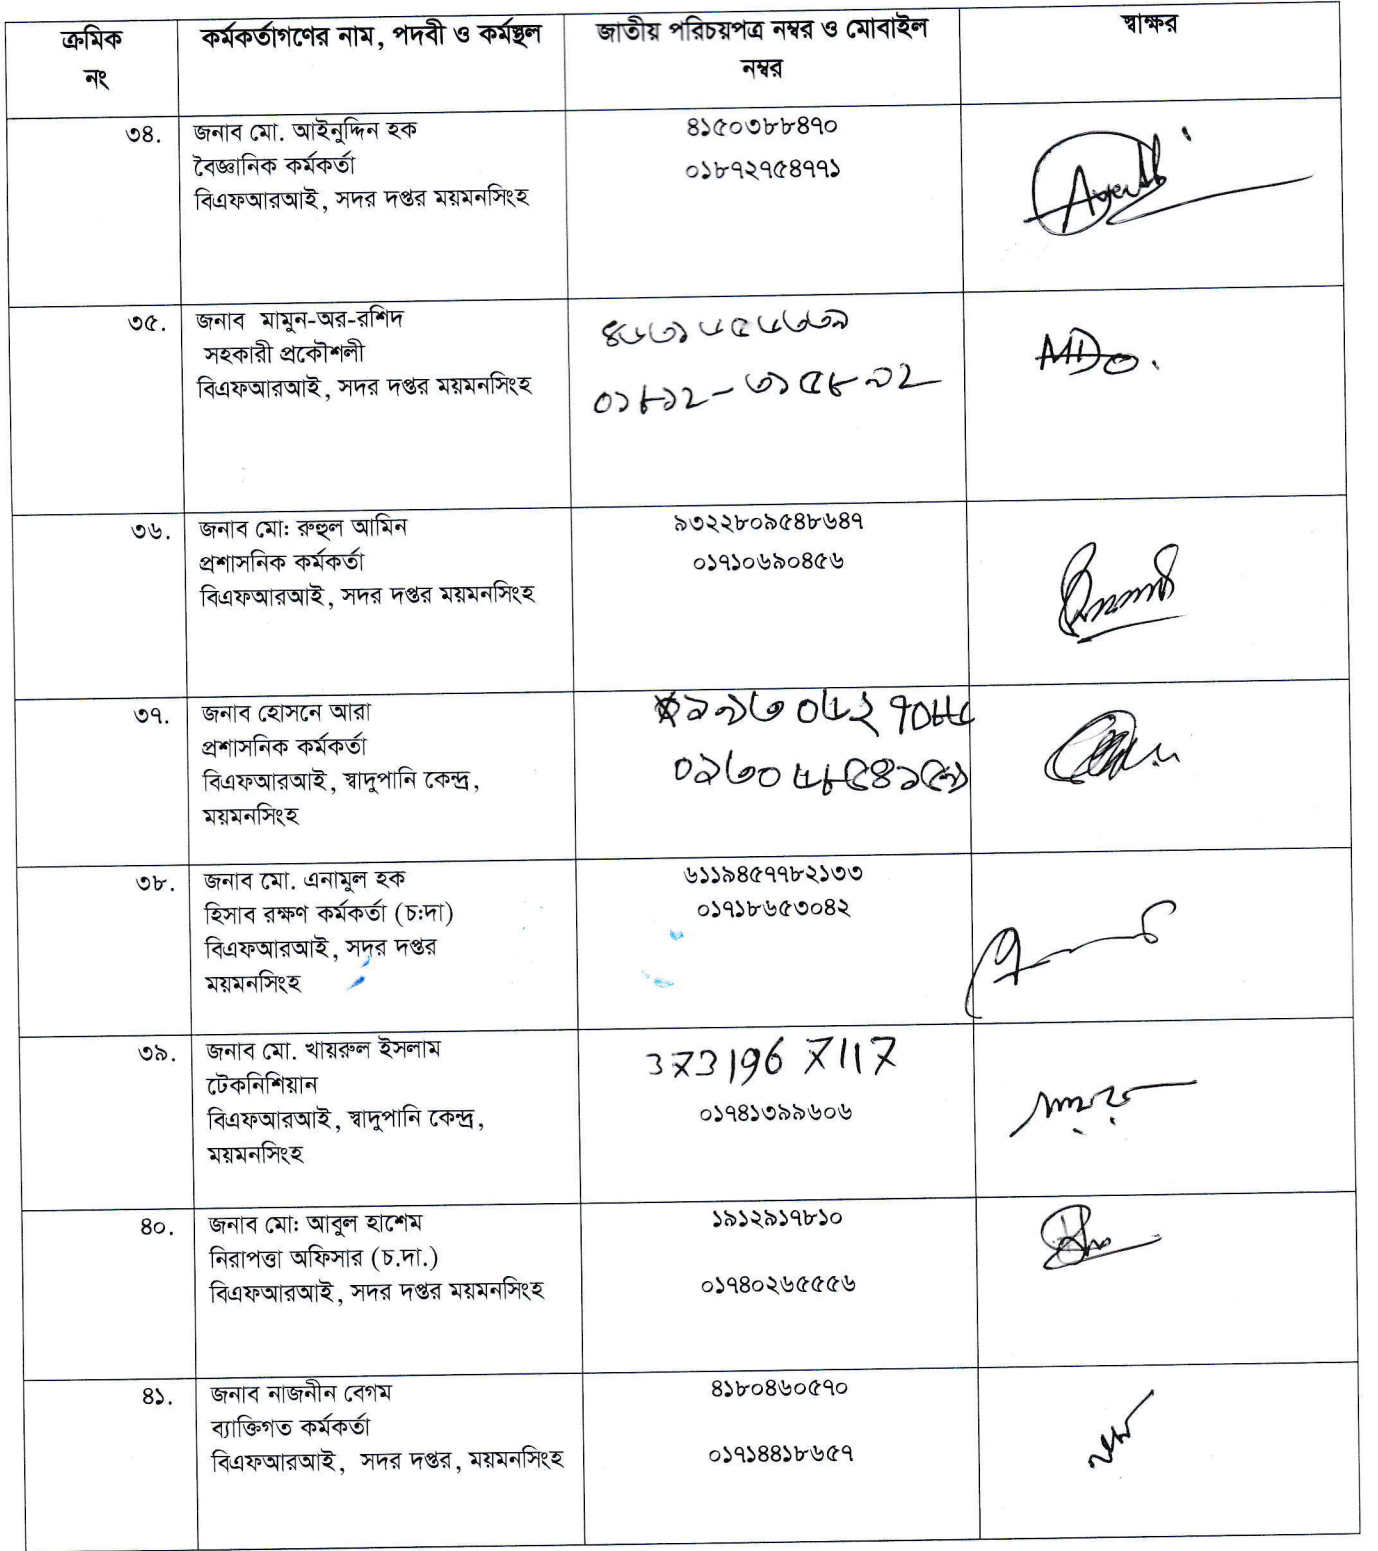 ক্রমিক নং	কর্মকর্তাগণের নাম, পদবী ও কর্মস্থল	জাতীয় পরিচয়পত্র নম্বর ও মোবাইল নম্বর	স্বাক্ষর
৩৪.
জনাব মো. আইনুদ্দিন হক
বৈজ্ঞানিক কর্মকর্তা
বিএফআরআই, সদর দপ্তর ময়মনসিংহ
৪১৫০৩৮৮৪৭০
০১৮৭২৭৫৪৭৭১
৩৫.
জনাব মামুন-অর-রশিদ
সহকারী প্রকৌশলী
বিএফআরআই, সদর দপ্তর ময়মনসিংহ
৩৬.
জনাব মো: রুহুল আমিন
প্রশাসনিক কর্মকর্তা
বিএফআরআই, সদর দপ্তর ময়মনসিংহ
৯৩২২৮০৯৫৪৮৬৪৭
০১৭১০৬৯০৪৫৬
৩৭.
জনাব হোসনে আরা
প্রশাসনিক কর্মকর্তা
বিএফআরআই, স্বাদুপানি কেন্দ্র,
ময়মনসিংহ
৩৮.
জনাব মো. এনামুল হক
হিসাব রক্ষণ কর্মকর্তা (চ:দা)
বিএফআরআই, সদর দপ্তর
ময়মনসিংহ
৬১১৯৪৫৭৭৮২১৩৩
০১৭১৮৬৫৩০৪২
৩৯.
জনাব মো. খায়রুল ইসলাম
টেকনিশিয়ান
বিএফআরআই, স্বাদুপানি কেন্দ্র,
ময়মনসিংহ
373196 7117
০১৭৪১৩৯৯৬০৬
৪০.
জনাব মো: আবুল হাশেম
নিরাপত্তা অফিসার (চ.দা.)
বিএফআরআই, সদর দপ্তর ময়মনসিংহ
১৯১২৯১৭৮১০
০১৭৪০২৬৫৫৫৬
৪১.
জনাব নাজনীন বেগম
ব্যাক্তিগত কর্মকর্তা
বিএফআরআই, সদর দপ্তর, ময়মনসিংহ
৪১৮০৪৬০৫৭০
০১৭১৪৪১৮৬৫৭